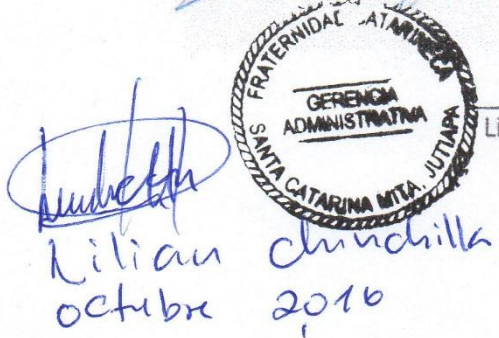 FRATERNIDAD CATARINECA
GERENCIA
ADMINISTRATIVA
SANTA CATARINA MITA, JUTIAPA
Li
Lilian Chinchilla
octubre 2016